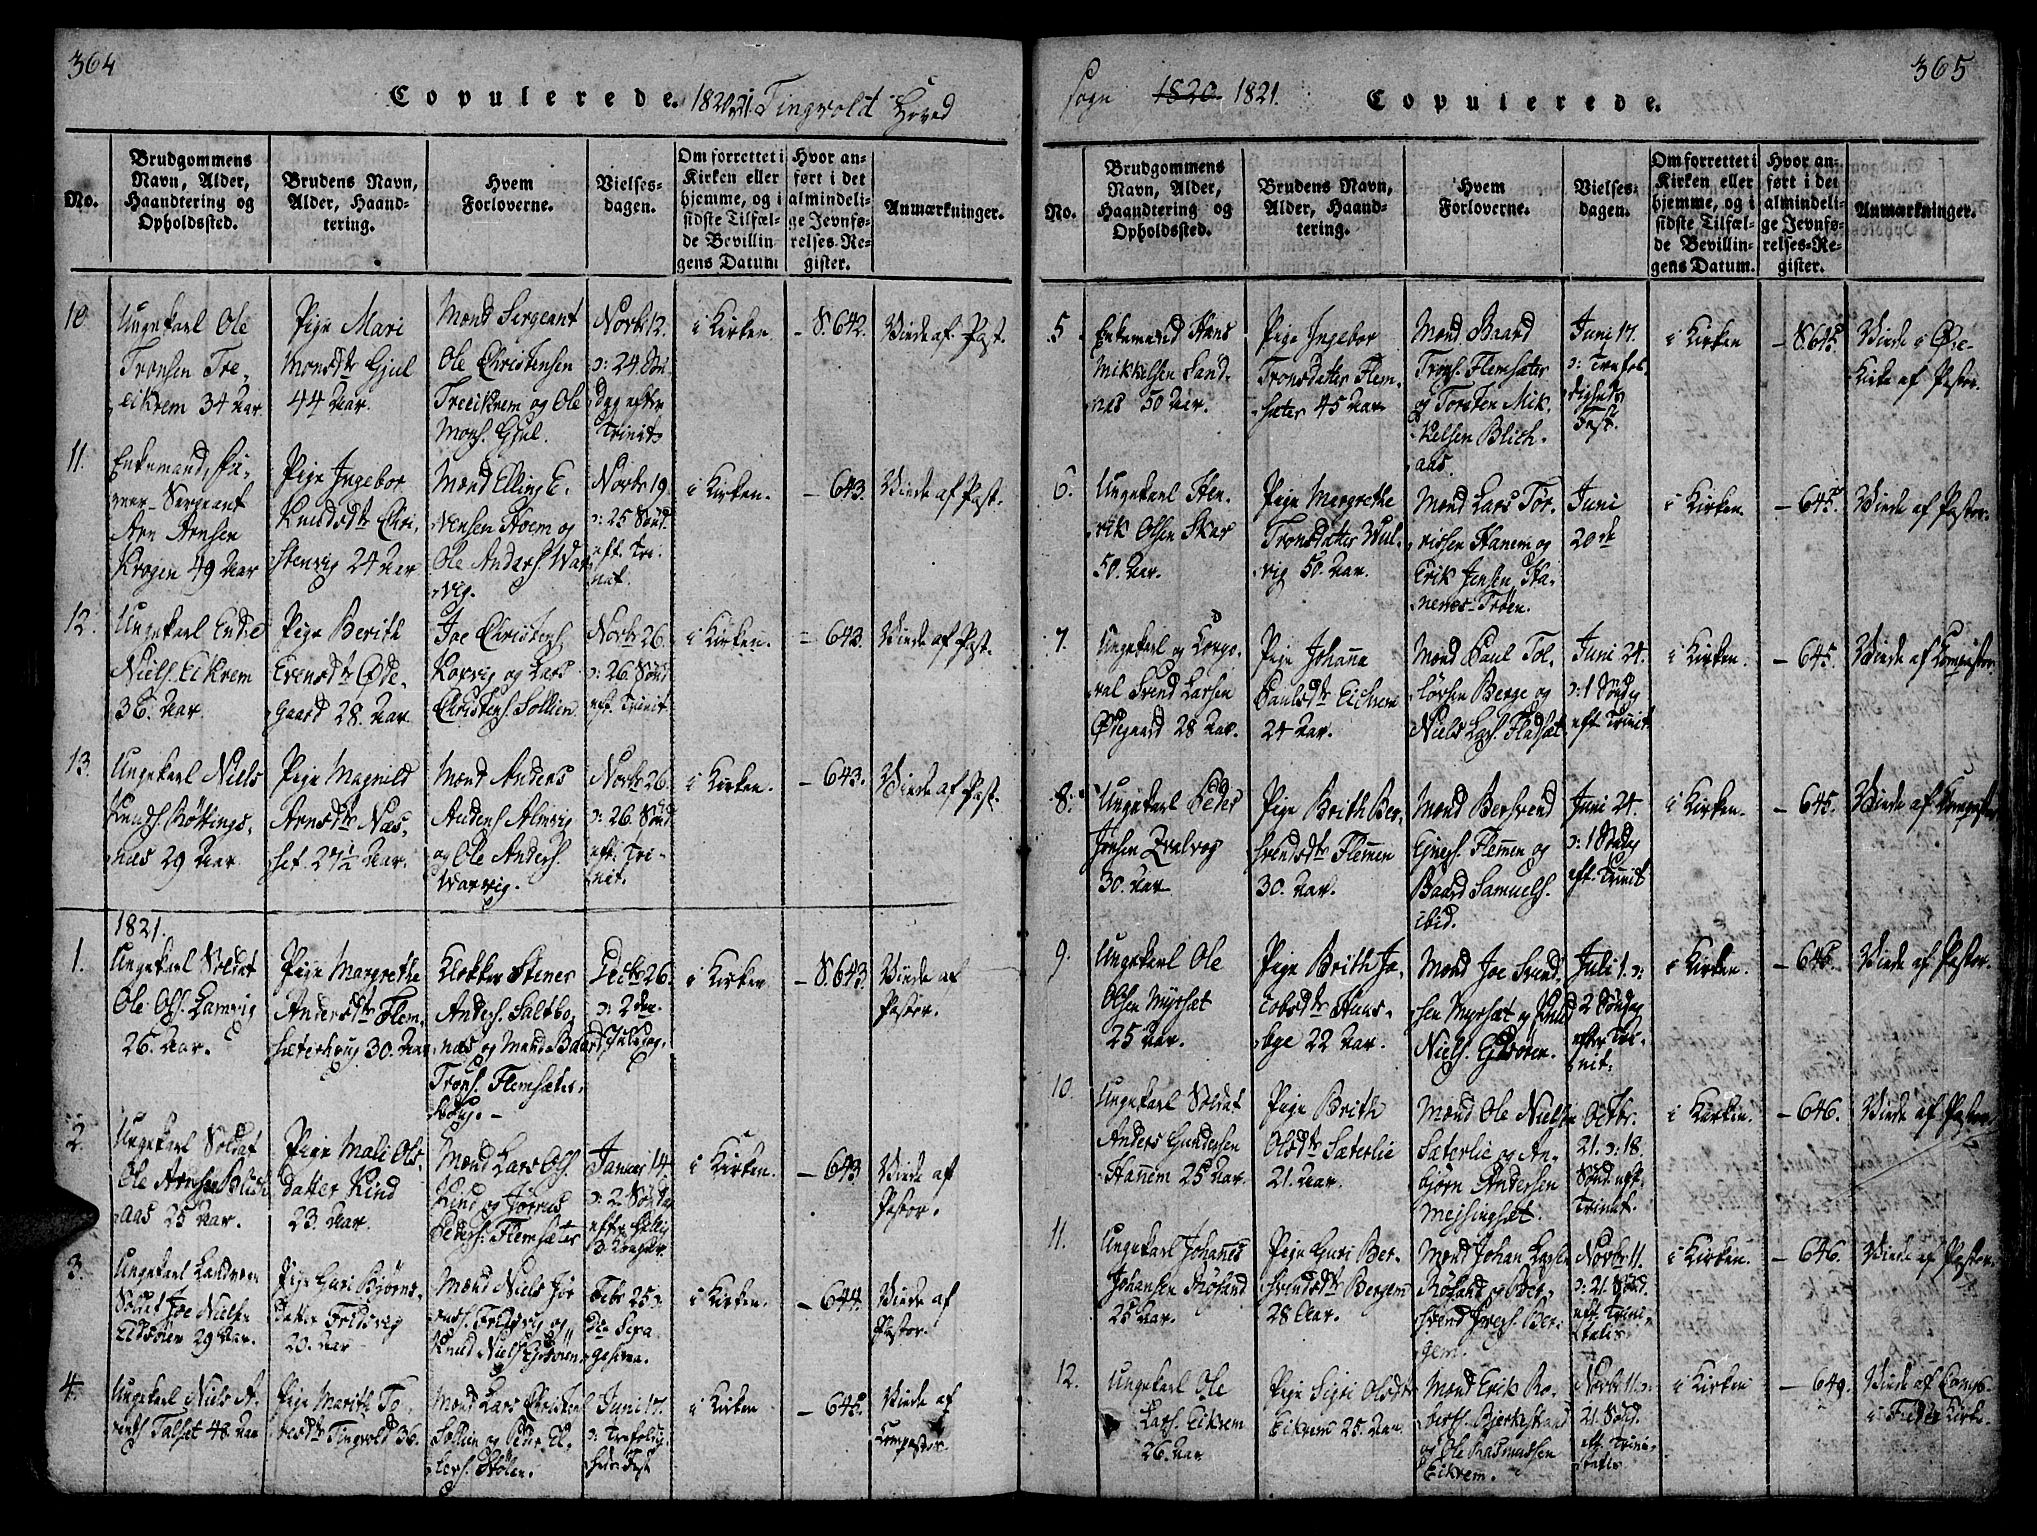 364
Copulerede 1820, 21. Tingvold Hoved
No.
Brudgommens Navn, Alder, Haandtering og Opholdssted.
Brudens Navn, Alder, Haandtering.
Hvem Forloverne.
Vielsesdagen.
Om forrettet i Kirken eller hjemme, og i sidste Tilfælde Bevillingens Datum
Hvor anført i det almindelige Jevnførelses-Register.
Anmærkninger.
10
Ungekarl Ole
Tronsen Tre-
eikrem 34 Aar
Pige Mari
Monsdtr Gjul
44 Aar.
Mænd Sergeant
Ole Christensen
Treeikrem og Ole
Mons. Gjul.
Novbr 12.
ɔ: 24 Søn-
dag efter
Trinit
i Kirken.
- S. 642.
Viede af Past.
11.
Enkemand,
Sergeant
Arn Arnsen
Krogen 49 Aar
Pige Ingebor
Knudsdtr Chri-
stenvig 24 Aar
Mænd Elling E-
vensen Hoem og
Ole Anders. War-
vig.
Novbr 19.
ɔ: 25 Sønd.
eft. Tri-
nit.
i Kirken.
- 643.
Viede af Past.
12.
Ungekarl Endre
Niels. Eikrem
36. Aar.
Pige Berith
Evensdtr Øde-
gaard 28. Aar
Joe Christens.
Korvig og Lars
Christens. Sollien
Novbr 26.
ɔ: 26. Sønd
eft. Trinit.
i Kirken.
= 643.
Viede af Past.
13.
Ungekarl Niels
Knuds. Röttings-
næs 29 Aar
Pige Magnild
Arnsdtr Næs-
set. 27½ Aar.
Mænd Anders
Anders. Almvig
og Ole Anders.
Warvig.
Novbr 26.
ɔ: 26. Sønd
eft. Tri-
nit.
i Kirken.
- 643.
Viede af Past.
1821.
1.
Ungekarl Soldat
Ole Ols. Lamvig
26. Aar.
Pige Margrethe
Andersdtr Flem-
sæterhaug 30. Aar
Klokker Stener
Anders. Saltbo-
næs og Mand Baard
Trons. Flemsæter-
haug. -
Decbr 26.
ɔ: 2den
Juledag.
i Kirken
- S. 643.
Viede af
Pastor.
2
Ungekarl Soldat
Ole Arnsen Blich-
aas 25 Aar.
Pige Mali Ols-
datter Rind
23. Aar.
Mænd Lars Ols.
Rind og Jörnus
Peders. Flemsæter
Januar 14
ɔ: 2 Søndag
eftr Hellig
3 Konger.
i Kirken.
- 643
Viede af
Pastor.
3.
Ungekarl Landværn
Soldat Joe Niels.
29 Aar.
Pige Guri Bjørns-
datter Fridsvig
20. Aar
Mænd Niels Jör-
nus. Fridsvig og
Knud Niels.
Febr 25 ɔ:
Do Sexa-
gesima.
i Kirken.
- 644.
Viede af
Pastor.
4.
Ungekarl Niels A-
Talset 48. Aar
Pige Marith To-
resdtr Tingvold 36.
Mænd Lars Christens.
Sollien og Peder El-
lers. Stölen.
Juni 17.
ɔ: Trefoldig-
heds Fest
i Kirken
- 645.
Viede af
Compastor.
365
Sogn 1820 1821.
Copulerede.
No.
Brudgommens Navn, Alder, Haandtering og Opholdssted.
Brudens Navn, Alder, Haandtering.
Hvem Forloverne.
Vielsesdagen.
Om forrettet i Kirken eller hjemme, og i sidste Tilfælde Bevillingens Datum.
Hvor anført i det almindelige Jevnførelses-Register.
Anmærkninger.
5.
Enkemand Hans
Mikkelsen Sand-
næs 50 Aar.
Pige Ingebor
Tronsdatter Flem-
sæter 45 Aar
Mænd Baard
Trons. Flemsæter
og Torsten Mik-
kelsen Blich-
aas.
Juni 17.
ɔ: Trefol-
digheds
Fest.
i Kirken
- S. 645.
Viede i Øre-
Kirke af Pastor.
6.
Ungekarl Hen-
rik Olsen Skar
50. Aar.
Pige Margrethe
Tronsdatter Wul-
vig 50. Aar.
Mænd Lars Tor-
Hanem og
Erik Jensen Ha-
nemes-Tröen.
Juni
20de
i Kirken.
- 645.
Viede af Pastor.
7.
Ungekarl og Corpo-
ral Svend Larsen
Ødegaard 28 Aar.
Pige Johanne
Paulsdtr Eickrem
24 Aar.
Mænd Paul Tol-
lövsen Berge og
Niels Lars. Fladset
Juni 24.
ɔ: 1 Søndag
eft. Trinit.
i Kirken.
- 645.
Viede af Compastor.
8.
Ungekarl Peder
Jonsen Qvalvog
30. Aar
Pige Brith Ber-
svendsdtr Flemmen
30. Aar.
Mænd Bersvend
Flemmen og
Baard Samuels.
ibid.
Juni 24.
ɔ: 1 Søndag
eft. Trinit
i Kirken.
- 645.
Viede af Compastor
9.
Ungekarl Ole
Olsen Myrsæt
25 Aar.
Pige Brith Ja-
cobsdtr Hans-
22 Aar.
Mænd Joe Svend-
sen Myrsæt og Knud
Niels.
Juli 1. ɔ:
2 Søndag
efter Tri-
nit.
i Kirken.
- 646.
Viede af Pastor.
10.
Ungekarl Soldat
Anders Gundersen
Hanem 25 Aar.
Pige Brith
Olsdtr Sæterlie
21. Aar.
Mænd Ole Nielsen
Sæterlie og An-
björn Andersen
Meisingsæt.
Octbr.
21. ɔ: 18.
Sønd. eft.
Trinit.
i Kirken.
- 646.
Viede af Pastor
11.
Ungekarl Johannes
Johansen Röhand
25 Aar.
Pige Guri Ber-
svendsdtr Bergem
28 Aar.
Mænd Johan
Röhand og Ber-
svend Ber-
gem.
Novbr 11.
ɔ: 21. Sønd.
eft. Trini-
tatis.
i Kirken.
- 646.
Viede af Pastor.
12.
Ungekarl Ole
Lars. Eikrem
26. Aar
Pige Sigri Olsdtr
Eikrem 25. Aar
Mænd Erik Ro-
bers. Bjerkestrand
og Ole Rasmussen
Eikrem.
Novbr 11. ɔ:
21. Sønd.
eft. Trini-
tatis
i Kirken
- 649.
Viede af
i Kirke.